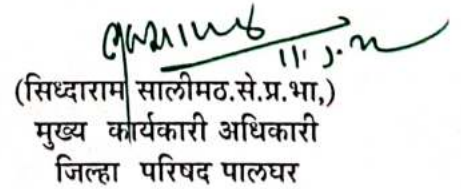 (सिध्दाराम सालीमठ.से.प्र.भा,)
मुख्य कार्यकारी अधिकारी
जिल्हा परिषद पालघर